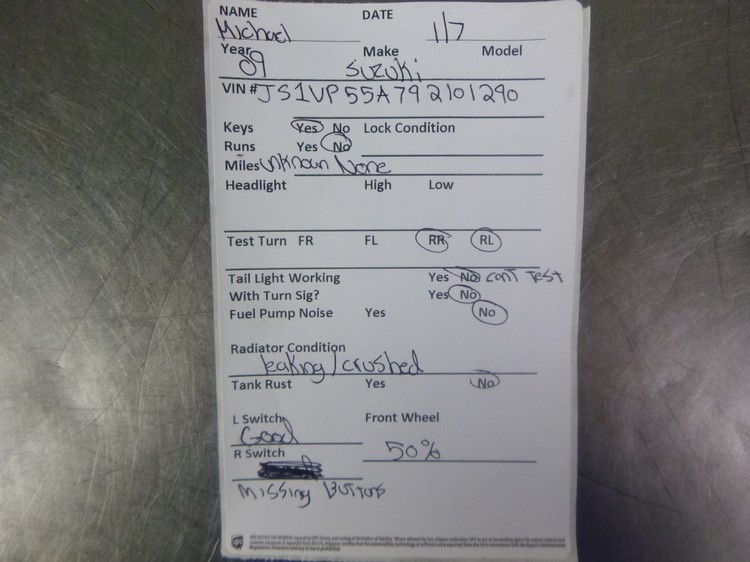 NAME DATE
Michael 1/7
Year Make Model
09 Suzuki
VIN # JS1VP55A792101290
Keys Yes No Lock Condition
Runs Yes No
Miles unknown None
Headlight High Low
Test Turn FR FL RR RL
Tail Light Working Yes No cant Test
With Turn Sig? Yes No
Fuel Pump Noise Yes No
Radiator Condition
leaking/crushed
Tank Rust Yes No
L Switch Front Wheel
Good 50%
R Switch
Missing Buttons